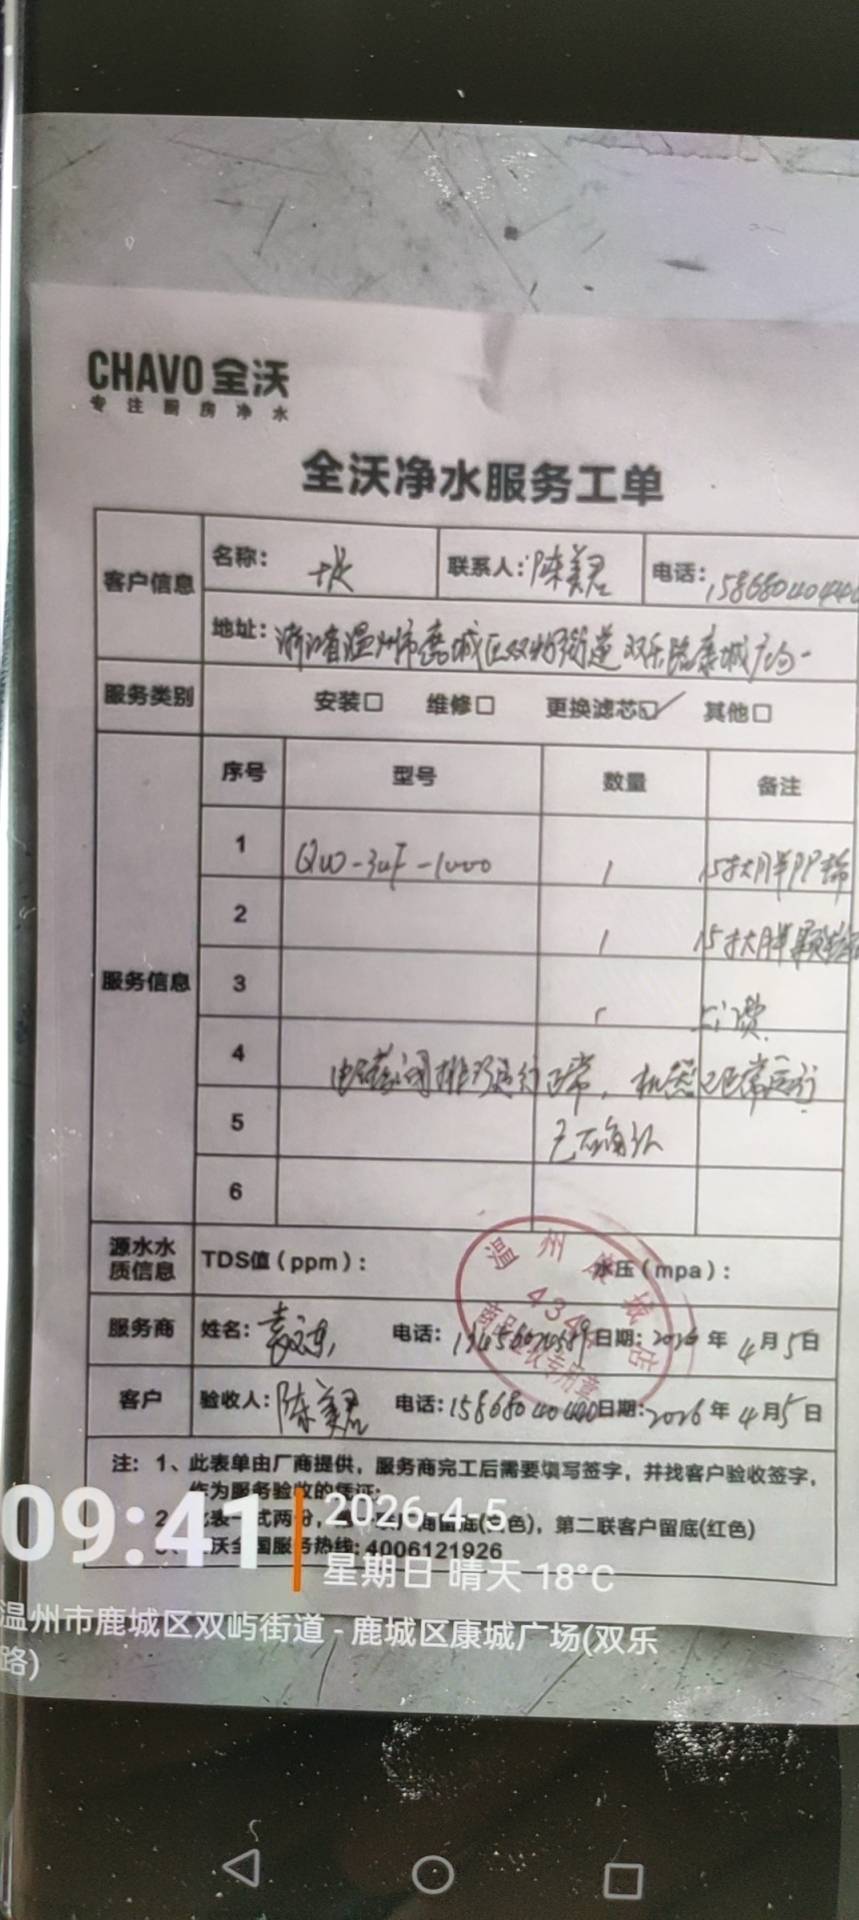 CHAVO 全沃
专注厨房净水
全沃净水服务工单
客户信息 名称： 联系人：陈美君 电话：
地址：浙江省温州市鹿城区双屿街道双乐路康城广场一
服务类别 安装□ 维修□ 更换滤芯☑ 其他□
服务信息 序号 型号 数量 备注
1 1 15寸大胖PP棉
2 1 15寸大胖颗粒
3 上门费
4 电磁阀排污运行正常，机器正常运行
5 已确认
6
源水水质信息 TDS值（ppm）： 水压（mpa）：
温州康城店
434
专用章
服务商 姓名： 电话： 日期：2026年4月5日
客户 验收人：陈美君 电话：15868040440 日期：2026年4月5日
注：1、此表单由厂商提供，服务商完工后需要填写签字，并找客户验收签字，
作为服务验收的凭证；
2、此表一式两份，商留底(色)，第二联客户留底(红色)
沃全国服务热线：4006121926
09:41
2026.4.5
星期日 晴天 18°C
温州市鹿城区双屿街道 - 鹿城区康城广场(双乐
路)